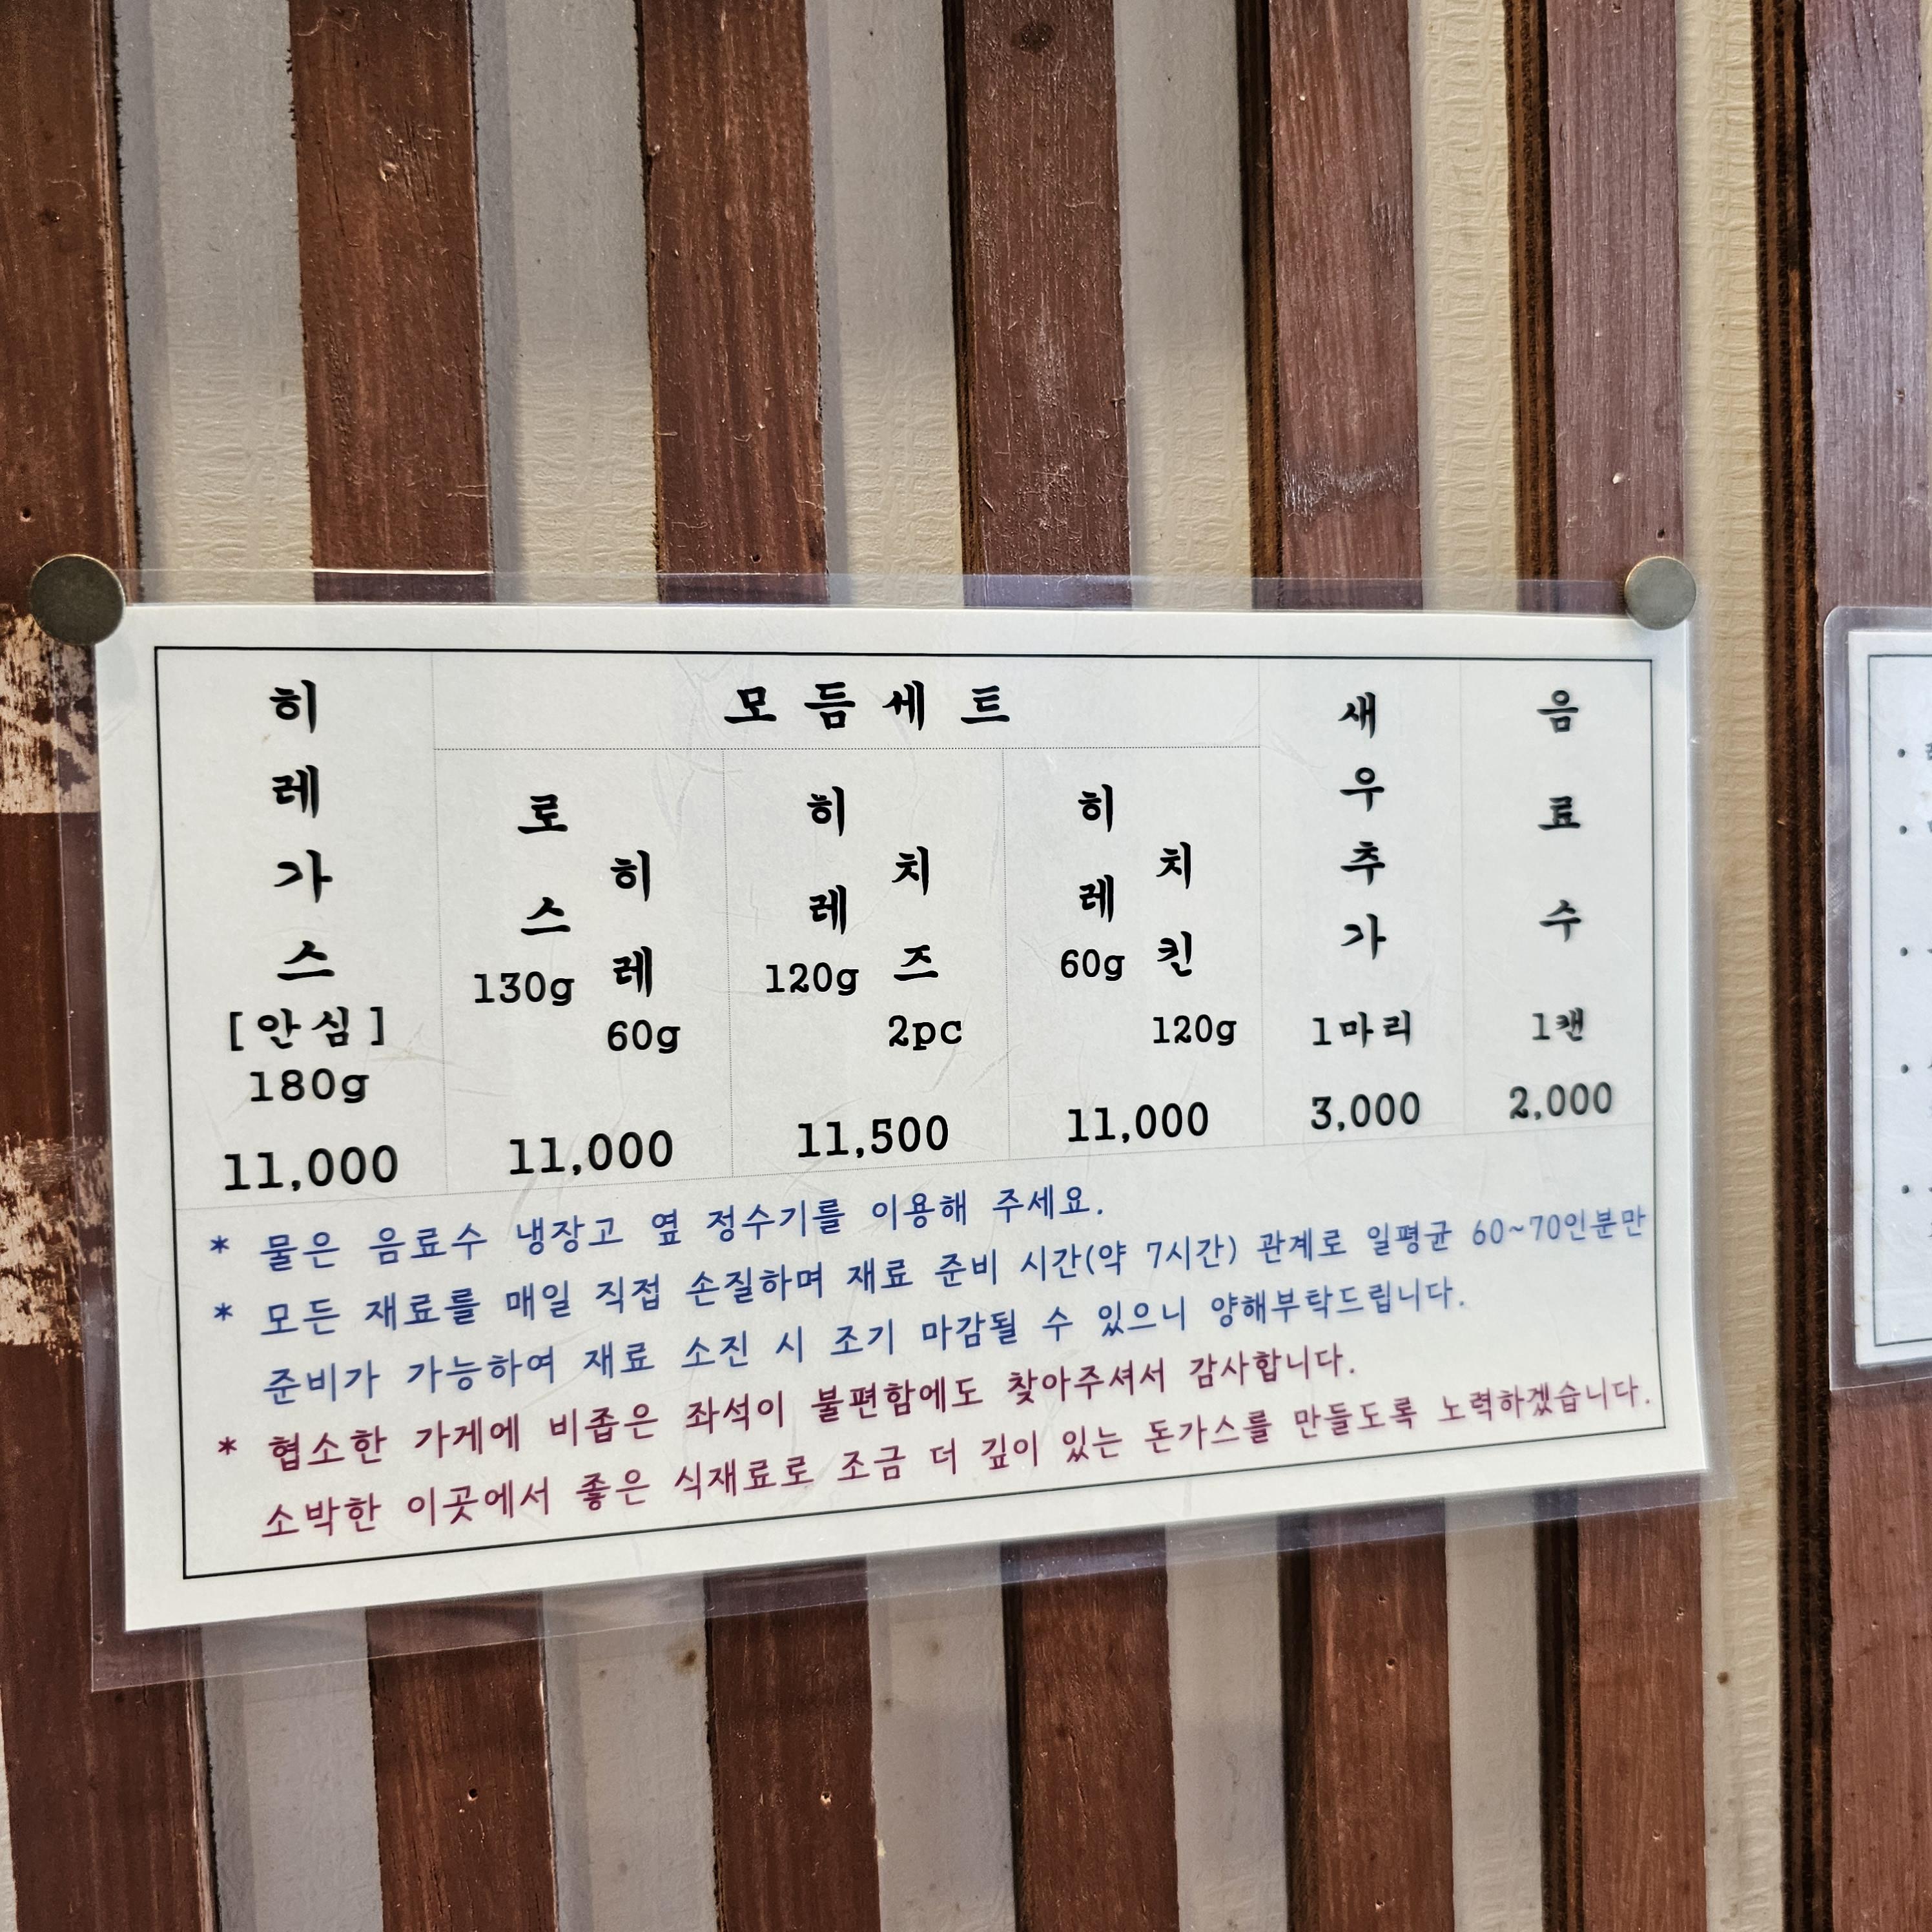 히레가스
[안심]
180g
11,000
모듬세트
로스
130g
히레
60g
11,000
히레
120g
치즈
2pc
11,500
히레
60g
치킨
120g
11,000
새우추가
1마리
3,000
음료수
1캔
2,000
* 물은 음료수 냉장고 옆 정수기를 이용해 주세요.
* 모든 재료를 매일 직접 손질하며 재료 준비 시간(약 7시간) 관계로 일평균 60~70인분만
준비가 가능하여 재료 소진 시 조기 마감될 수 있으니 양해부탁드립니다.
* 협소한 가게에 비좁은 좌석이 불편함에도 찾아주셔서 감사합니다.
소박한 이곳에서 좋은 식재료로 조금 더 깊이 있는 돈가스를 만들도록 노력하겠습니다.